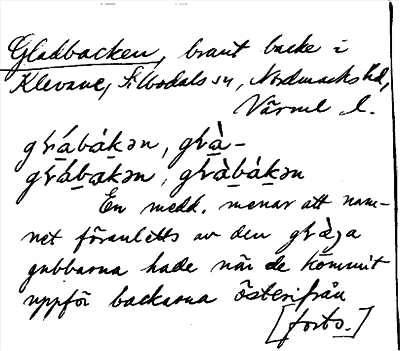 Gladbacken, brant backe i
Klevane, Silbodals sn, Nordmarks hd,
Värml. l.
glábákən, glà-
glábakən, glàbákən
En medd. menar att nam-
net föranletts av den glàɜa
gubbarna hade när de kommit
uppför backarna österifrån
[forts.]